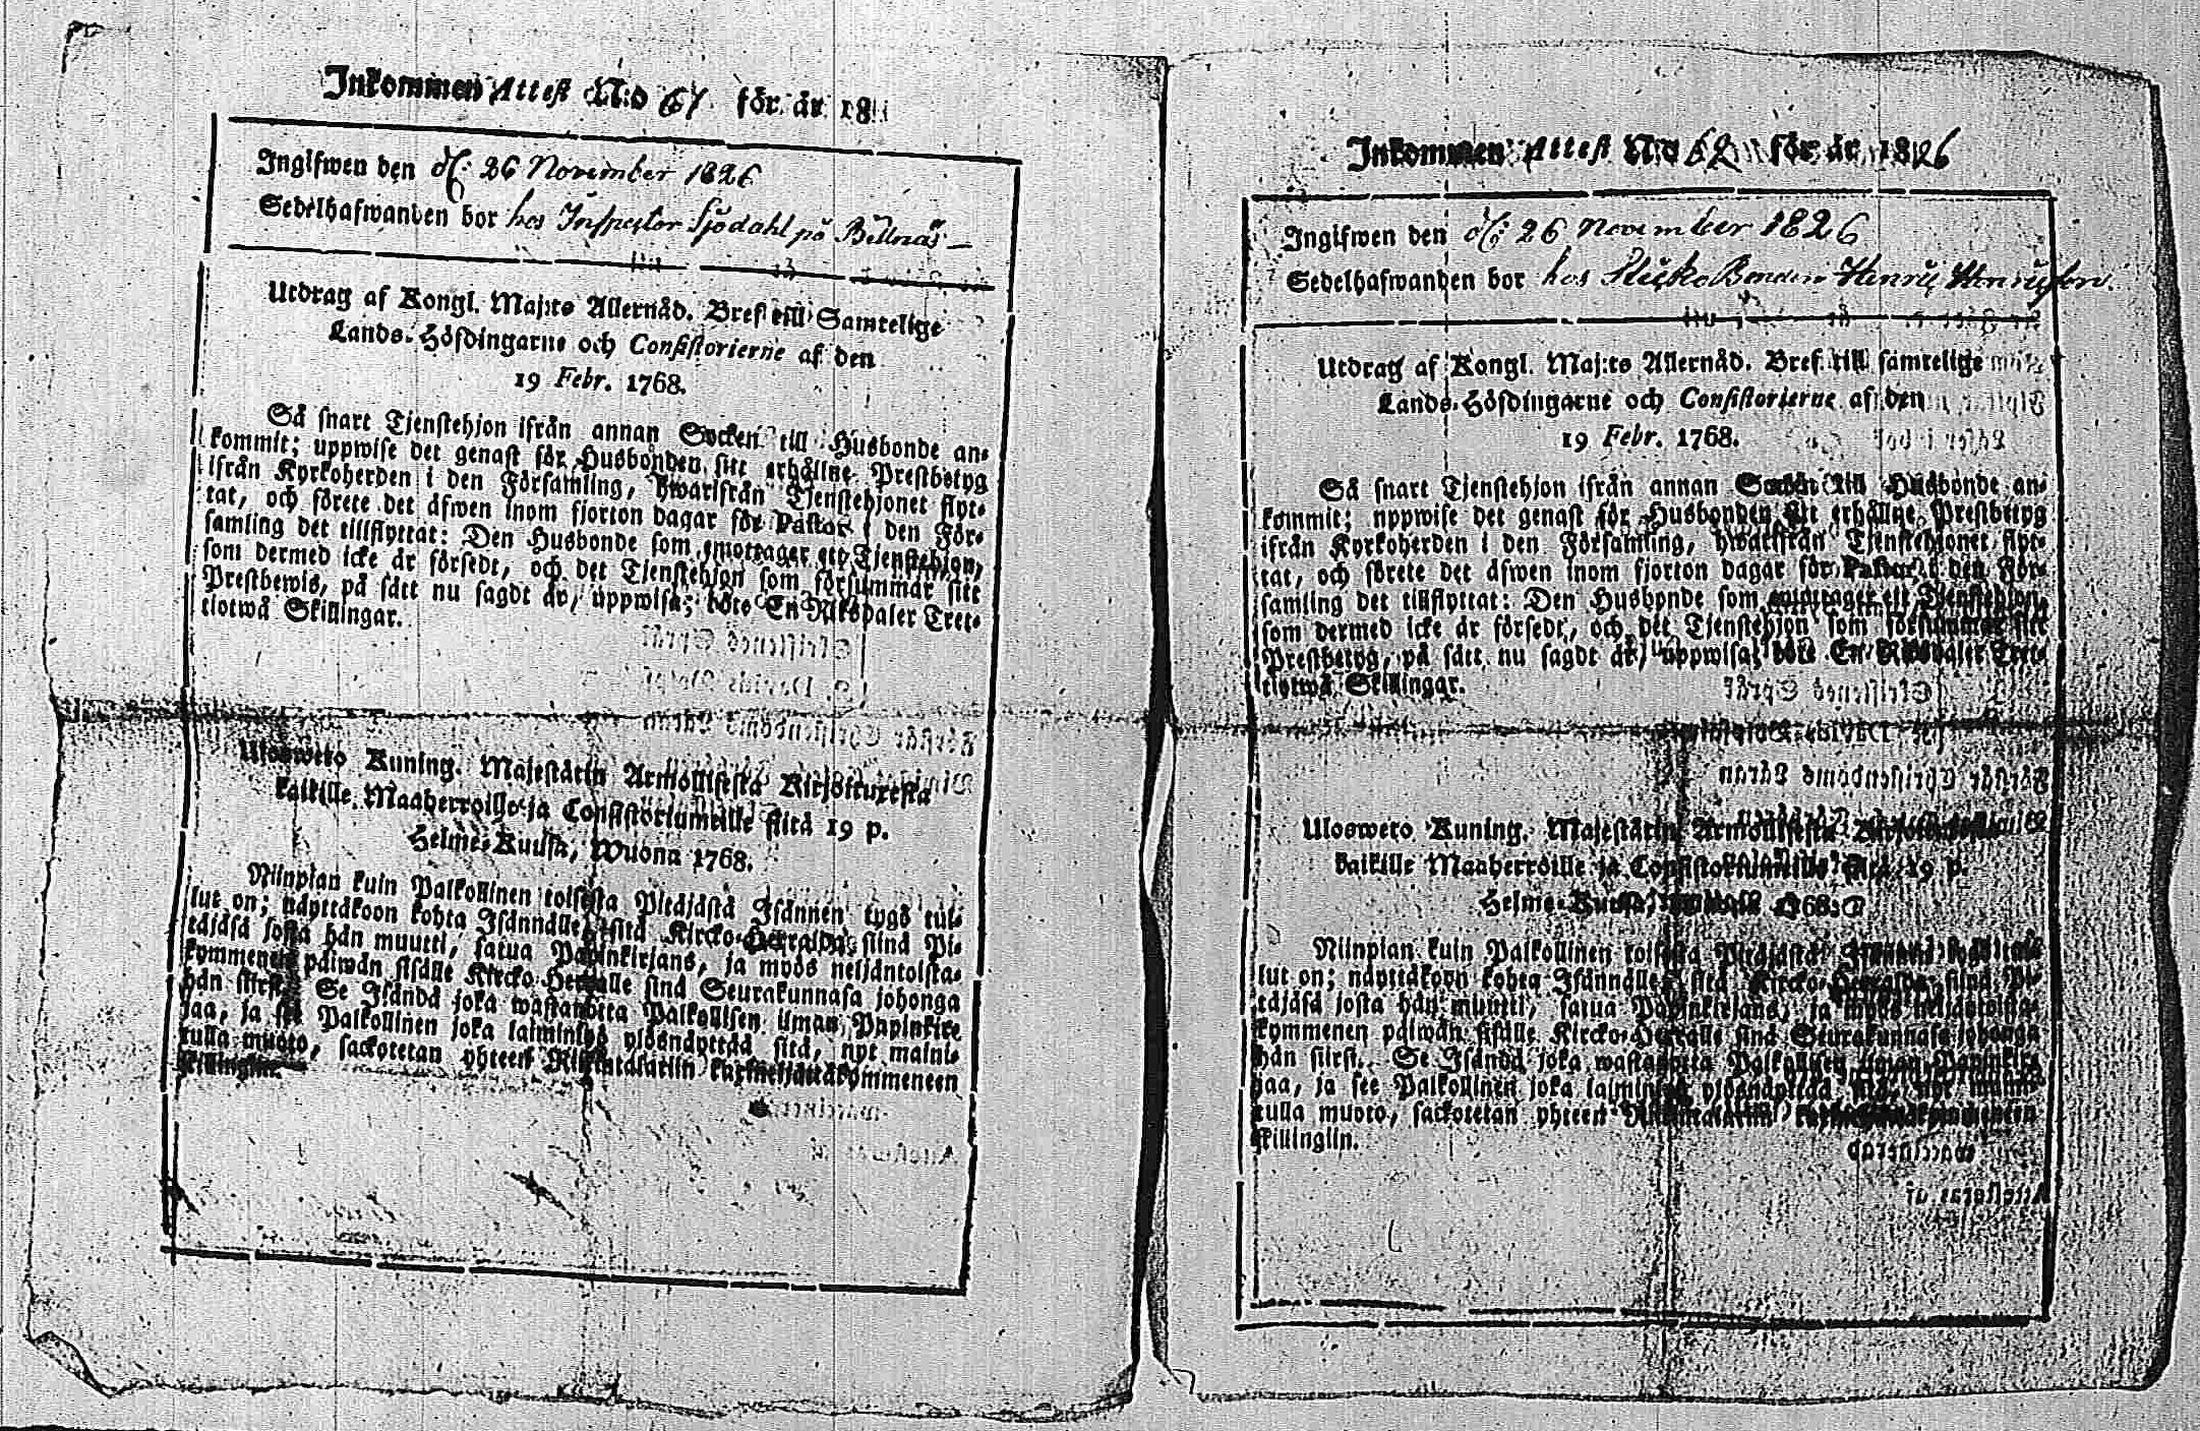 Inkommen Attest N:o 61 för år 18
Ingifwen den d: 26 November 1826
Sedelhafwanden bor hos Inspector Sjödahl på Billnäs
Utdrag af Kongl. Maj:ts Allernåd. Bref till Samtelige
Lands-Höfdingarne och Consistorierne af den
19 Febr. 1768.
Så snart Tjenstehjon ifrån annan Socken till Husbonde an-
kommit; uppwise det genast för Husbonden sitt erhållne Prestbetyg
ifrån Kyrkoherden i den Församling, hwarifrån Tjenstehjonet flyt-
tat, och förete det äfwen inom fjorton dagar för Pastor i den För-
samling det tillflyttat: Den Husbonde som emottager ett Tjenstehjon,
som dermed icke är försedt, och det Tjenstehjon som försummar sitt
Prestbewis, på sätt nu sagdt är, uppwisa; böte En Riksdaler Tret-
tiotwå Skillingar.
Ulosweto Kuning. Majestätin Armollisesta Kirjoituxesta
kaikille Maaherroille ja Consistoriumeille siitä 19 p.
Helme-Kuusa, Wuonna 1768.
Niinpian kuin Palkollinen toisesta Pitäjästä Isännen tygö tul-
lut on; näyttäkoon kohta Isännälle sitä Kircko-Herralda siinä Pi-
täjäsä josta hän muutti, saatua Papinkirjans, ja myös neljäntoista-
kymmenen päiwän sisälle Kircko-Herralle sinä Seurakunnasa johonga
hän siirsi. Se Isändä joka wastanotta Palkollisen ilman Papinkir-
jaa, ja se Palkollinen joka laiminlyö ylösnäyttää sitä, nyt maini-
tulla muoto, sackotetan yhteen Riikintalariin kaxineljättäkymmeneen
killingiin.
Inkommen Attest N:o 62 för år 1826
Ingifwen den d: 26 November 1826
Sedelhafwanden bor hos Bonden Henric Henricsson
Utdrag af Kongl. Maj:ts Allernåd. Bref till samtelige
Lands-Höfdingarne och Consistorierne af den
19 Febr. 1768.
Så snart Tjenstehjon ifrån annan Socken till Husbonde an-
kommit; uppwise det genast för Husbonden sitt erhållne Prestbetyg
ifrån Kyrkoherden i den Församling, hwarifrån Tjenstehjonet flyt-
tat, och förete det äfwen inom fjorton dagar för Pastor i den För-
samling det tillflyttat: Den Husbonde som emottager ett Tjenstehjon,
som dermed icke är försedt, och det Tjenstehjon som försummar sitt
Prestbetyg, på sätt nu sagdt är, uppwisa; böte En Riksdaler Tret-
tiotwå Skillingar.
Ulosweto Kuning. Majestätin Armollisesta Kirjoituxesta
kaikille Maaherroille ja Consistoriumeille siitä 19 p.
Helme-Kuusa, 1768.
Niinpian kuin Palkollinen toisesta Pitäjästä Isännen tygö tul-
lut on; näyttäkoon kohta Isännälle sitä Kircko-Herralda siinä Pi-
täjäsä josta hän muutti, saatua Papinkirjans, ja myös neljäntoista-
kymmenen päiwän sisälle Kircko-Herralle sinä Seurakunnasa johonga
hän siirsi. Se Isändä joka wastanotta Palkollisen ilman Papinkir-
jaa, ja see Palkollinen joka laiminlyö ylösnäyttää sitä, nyt maini-
tulla muoto, sackotetan yhteen Riikintalariin
killingiin.